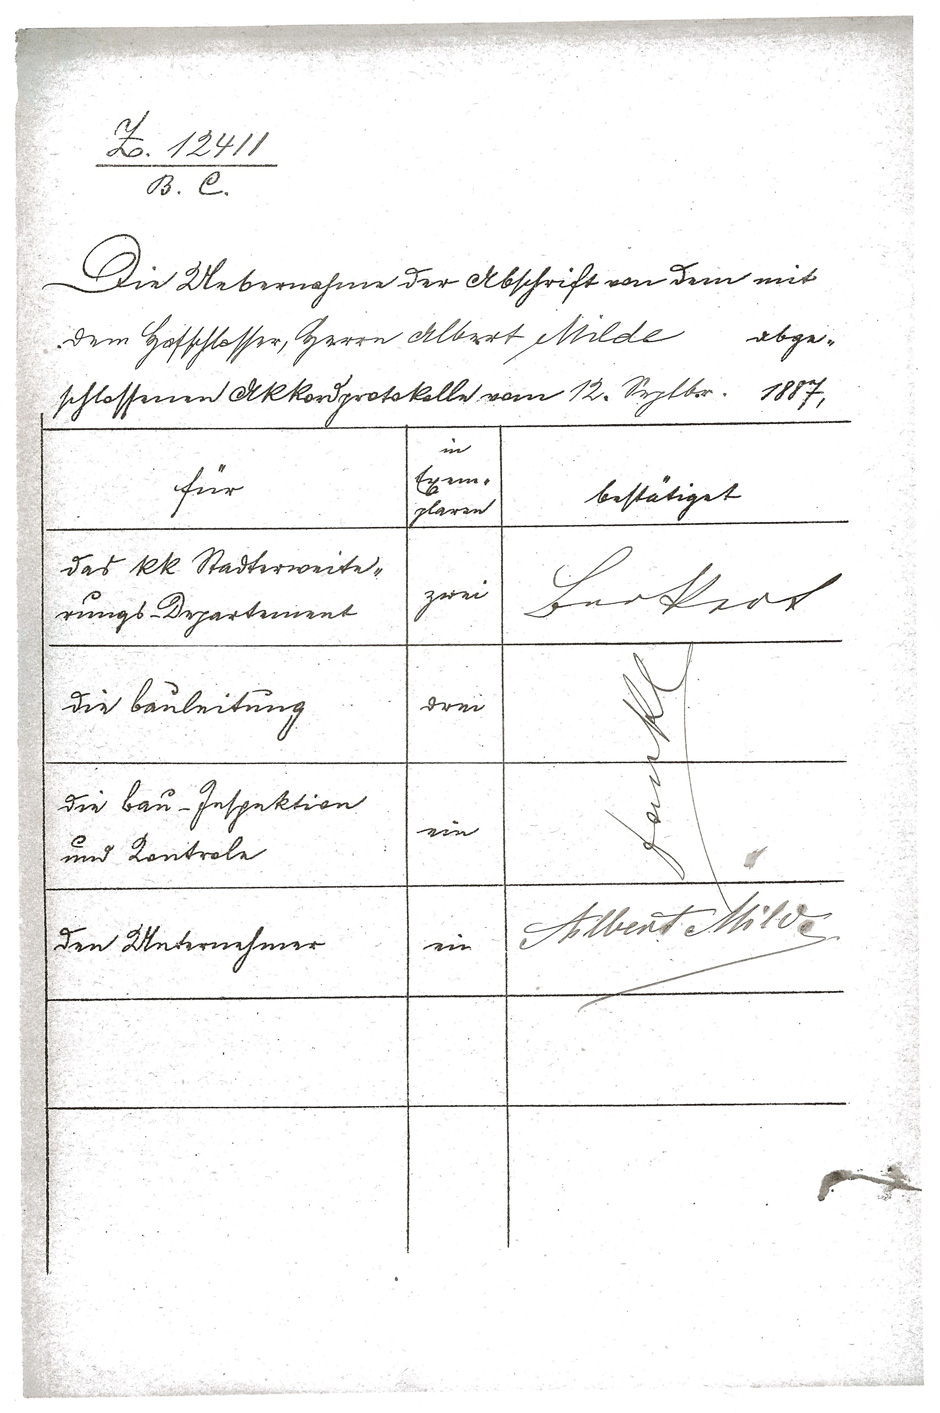 Z. 12411
B. C.
Die Uebernahme der Abschrift von dem mit
dem Hofschlosser, Herrn Albert Milde abge-
schlossenen Akkordprotokolle vom 12. Septbr. 1887,
für
in
Exem-
plaren
bestätiget
das kk Stadterweite-
rungs-Departement
zwei
die Bauleitung
drei
die Bau-Inspektion
und Kontrole
ein
den Unternehmer
ein
Albert Milde